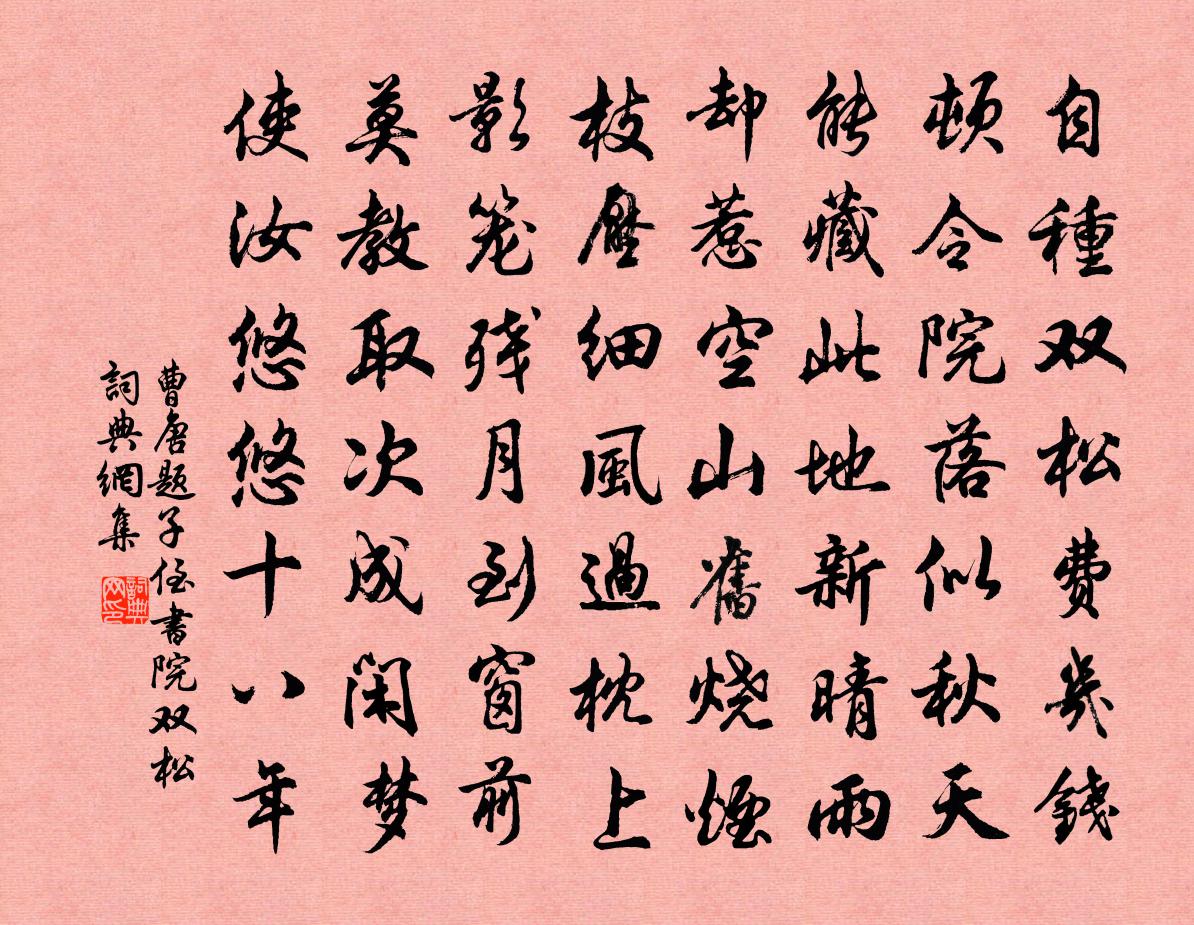 自種双松費幾錢
頓令院落似秋天
能藏此地新晴雨
却惹空山舊烧煙
枝壓細風過枕上
影笼残月到窗前
莫教取次成闲梦
使汝悠悠十八年
曹唐题子侄書院双松
詞典網集
詞典網印